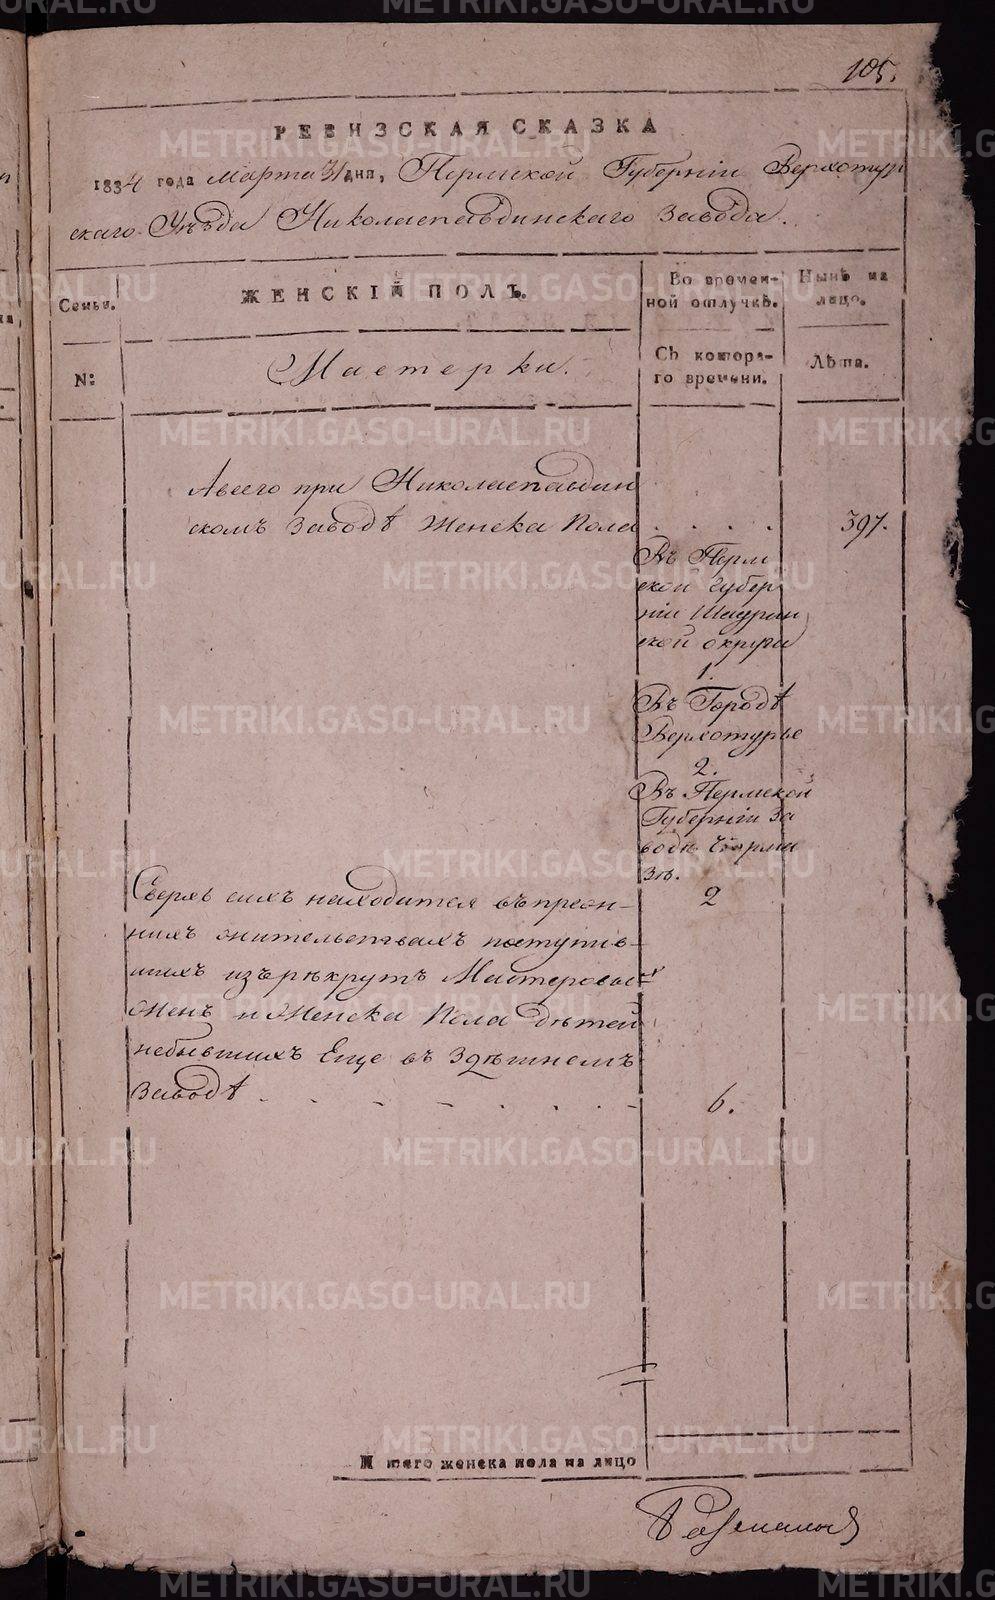 105.
РЕВИЗСКАЯ СКАЗКА
1834 года Марта 31 дня, Пермской Губернiи Верхотур
скаго Уѣзда Николаепавдинскаго Завода.
Семьи.
ЖЕНСКIЙ ПОЛЪ.
Во времен-
ной отлучкѣ.
Нынѣ на
лицо.
N:
Мастерки.
Съ котора-
го времени.
Лѣта.
Авсего при Николаепавдин
скомъ Заводѣ Женска Пола . . . . 397.
Въ Перм
ской Губер
нiи
ской округи
1.
Въ Городѣ
Верхотурье
2.
Въ Пермской
Губернiи За
водѣ Чормы
зѣ.
2
Сверхъ сихъ находится въпреж-
нихъ жительствахъ поступив-
шихъ изърѣкрутъ Мастеровых
Женъ и Женска Пола дѣтей
небывшихъ Еще въ Здѣшнемъ
Заводѣ . - . - - . . . - 6.
И того женска пола на лицо
METRIKI.GASO-URAL.RU